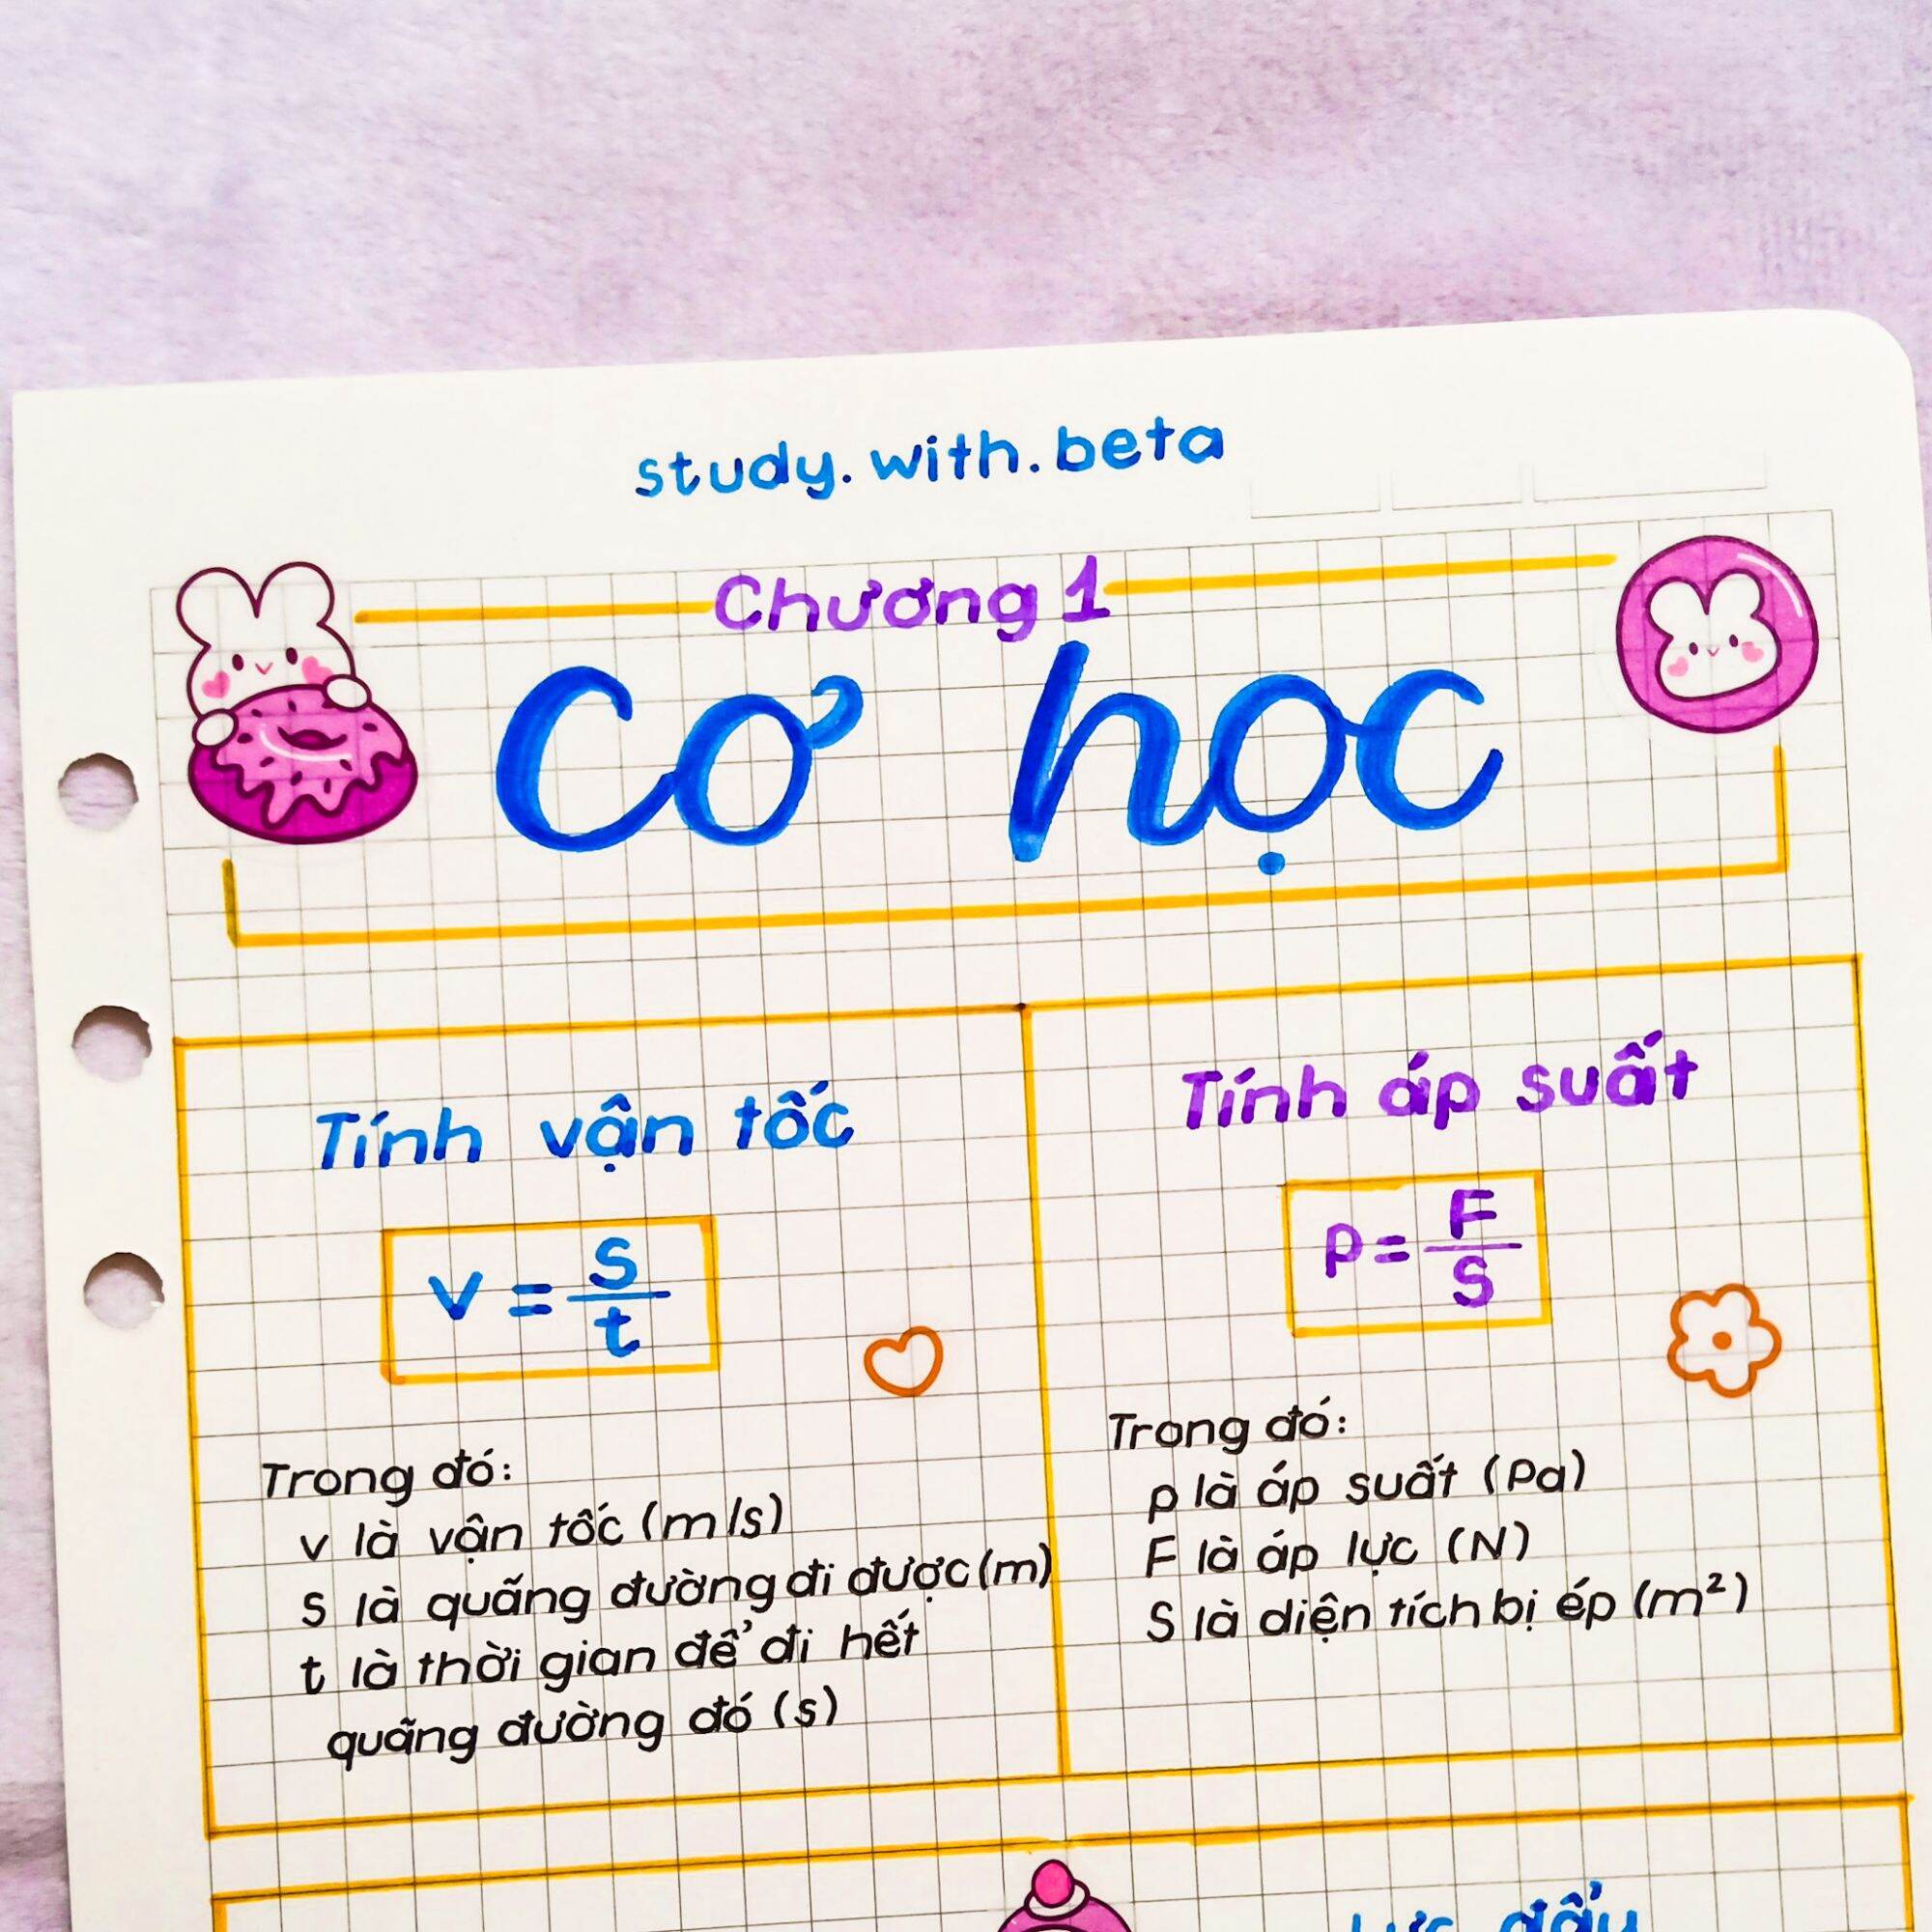 study.with.beta
Chương 1
Cơ học
Tính vận tốc
v = s/t
Trong đó:
v là vận tốc (m/s)
s là quãng đường đi được (m)
t là thời gian để đi hết
quãng đường đó (s)
Tính áp suất
p = F/S
Trong đó:
p là áp suất (Pa)
F là áp lực (N)
S là diện tích bị ép (m²)
Lực đẩy